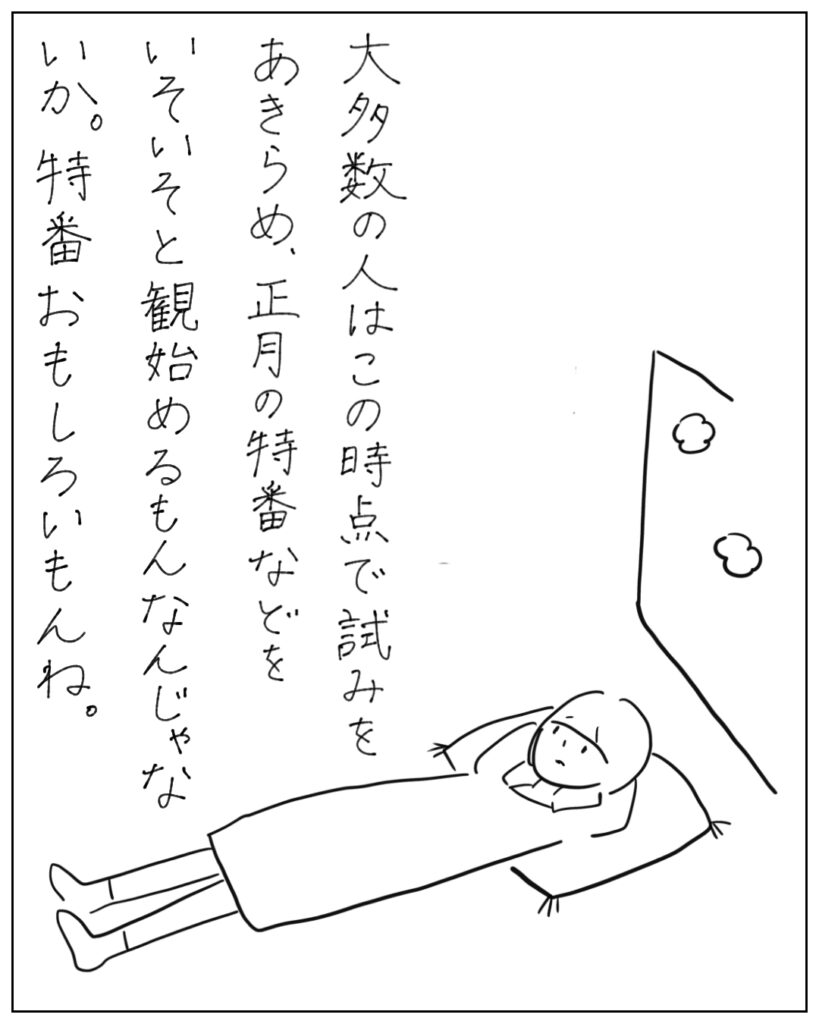 大多数の人はこの時点で試みを
あきらめ、正月の特番などを
いそいそと観始めるもんなんじゃな
いか。特番おもしろいもんね。